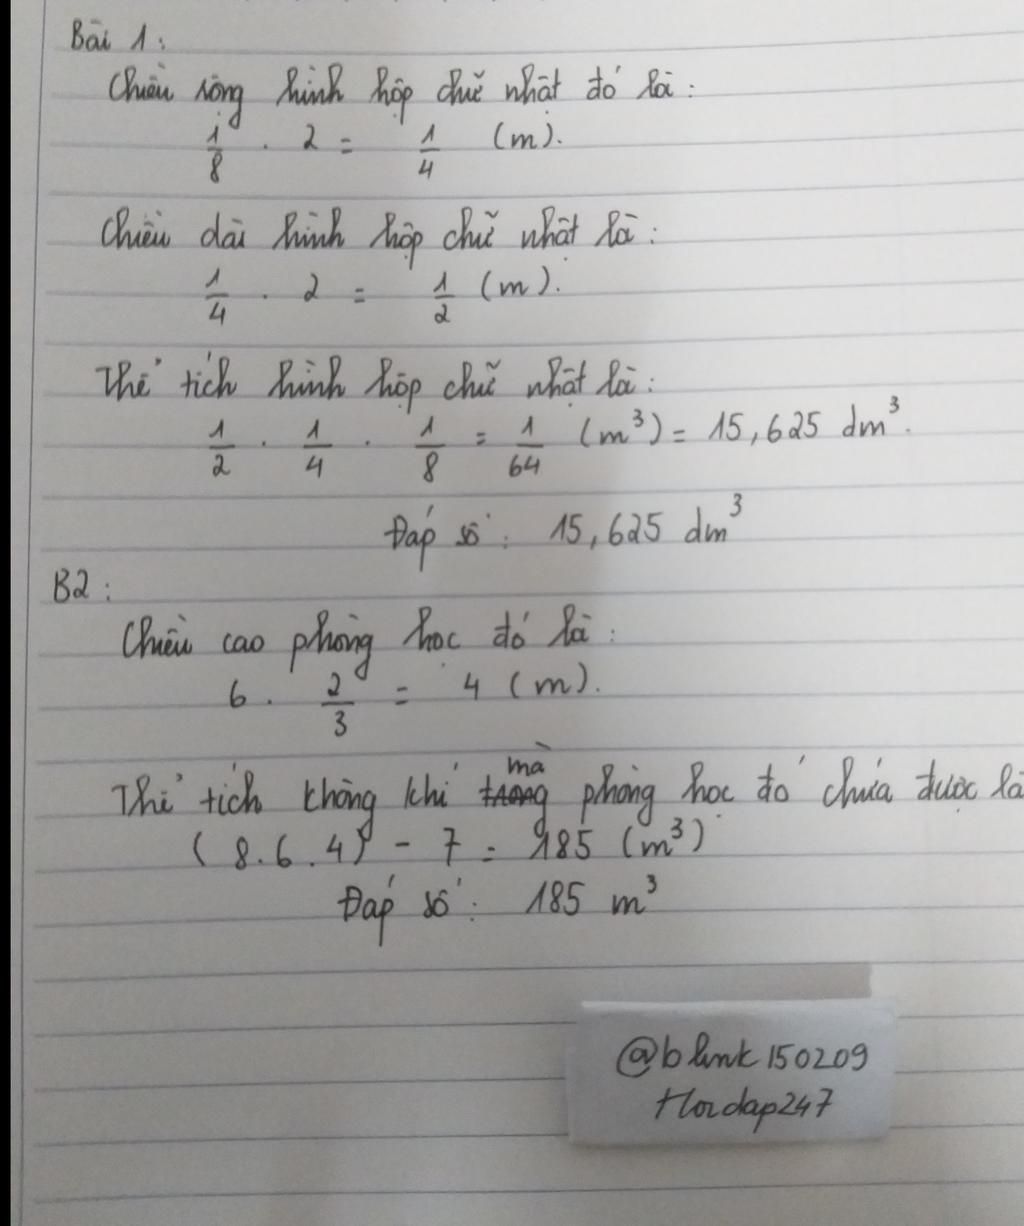 Bài 1:
Chiều rộng hình hộp chữ nhật đó là:
1/8 . 2 = 1/4 (m).
Chiều dài hình hộp chữ nhật là:
1/4 . 2 = 1/2 (m).
Thể tích hình hộp chữ nhật là:
1/2 . 1/4 . 1/8 = 1/64 (m³) = 15,625 dm³.
Đáp số: 15,625 dm³
B2:
Chiều cao phòng học đó là:
6 . 2/3 = 4 (m).
Thể tích không khí mà phòng học đó chứa được là
(8.6.4) - 7 = 185 (m³)
Đáp số: 185 m³
@blink150209
Hoidap247